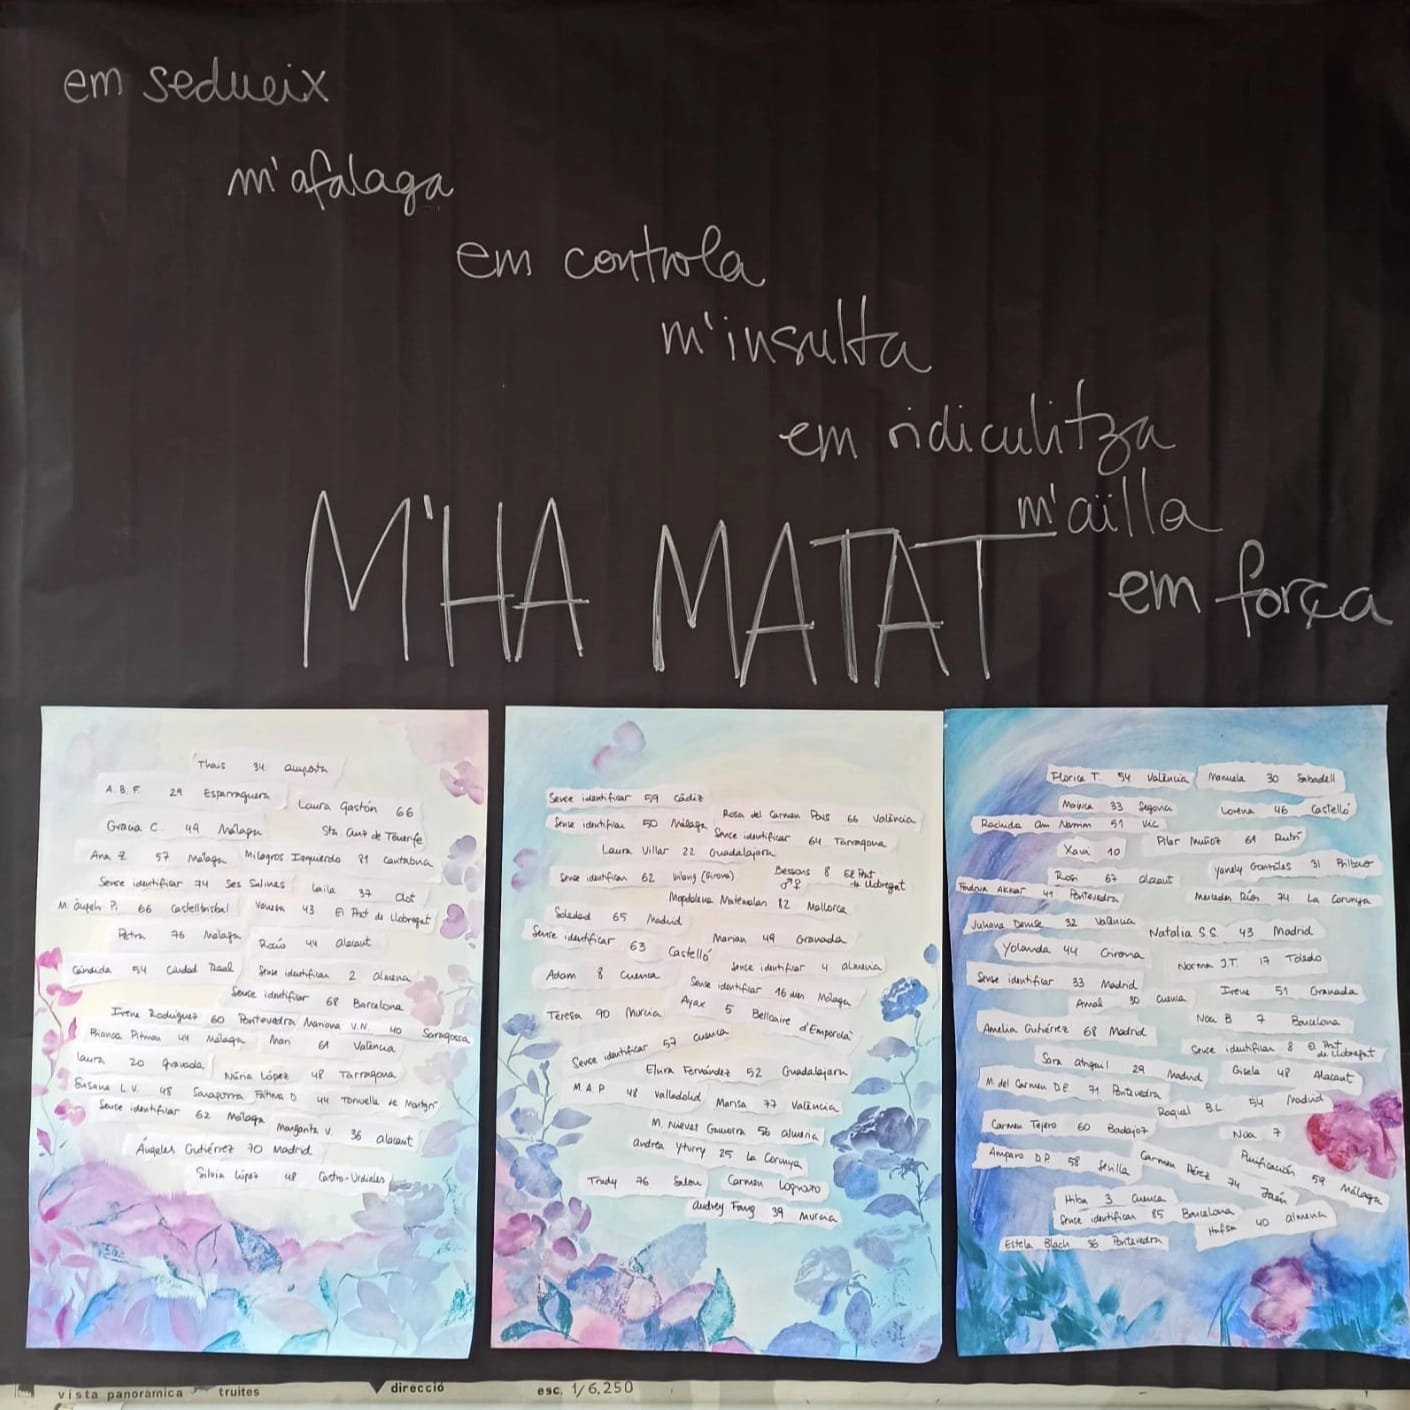 em sedueix
m'afalaga
em controla
m'insulta
em ridiculitza
m'aïlla
em força
M'HA MATAT
Thais 34 Amposta
A.B.F. 29 Esparraguera
Laura Gastón 66
Sta. Cruz de Tenerife
Gracia C. 49 Málaga
Ana Z. 57 Málaga
Milagros Izquierdo 81 Cantabria
Sense identificar 74 Ses Salines
Laila 37 Olot
M. Àngels P. 66 Castellbisbal
Vanesa 43 El Prat de Llobregat
Petra 76 Málaga
Rocío 44 Alacant
Cándida 54 Ciudad Real
Sense identificar 2 Almeria
Sense identificar 68 Barcelona
Irene Rodríguez 60 Pontevedra
Mariana V.N. 40 Saragossa
Bianca Pitman 44 Málaga
Mari 61 València
Laura 20 Granada
Núria López 48 Tarragona
Susana L.V. 48 Saragossa
Fatima D. 44 Torroella de Montgrí
Sense identificar 62 Málaga
Margarita V. 36 Alacant
Ángeles Gutiérrez 70 Madrid
Silvia López 48 Castro-Urdiales
Sense identificar 59 Cádiz
Rosa del Carmen Pous 66 València
Sense identificar 50 Málaga
Sense identificar 64 Tarragona
Laura Villar 22 Guadalajara
Sense identificar 62 (Girona)
Bessons 8 El Prat de Llobregat
♂♀
Magdalena 82 Mallorca
Soledad 65 Madrid
Marian 49 Granada
Sense identificar 63 Castelló
Sense identificar 4 Almeria
Adam 8 Cuenca
Sense identificar 16 Málaga
Teresa 90 Murcia
Ayax 5 Bellcaire d'Empordà
Sense identificar 57 Cuenca
Elvira Fernández 52 Guadalajara
M.A.P 48 Valladolid
Marisa 77 València
M. Nieves 56 Almeria
Andrea Yturry 25 La Corunya
Trudy 76 Salou
Carmen Logroño
Audrey Fang 39 Murcia
Florica T. 54 València
Manuela 30 Sabadell
Maivca 33 Segovia
Lorena 46 Castelló
Rachida 51 Vic
Pilar Muñoz 61 Rubí
Xavi 10
Rosi 67 Alacant
Yanely González 31 Bilbao
Fadoua Akkar 41 Pontevedra
Mercedes Ríos 74 La Corunya
Juliana Denise 32 València
Natalia S.S. 43 Madrid
Yolanda 44 Girona
Norma J.T. 17 Toledo
Sense identificar 33 Madrid
Irene 51 Granada
Amal 30 Cuenca
Noa B 7 Barcelona
Amelia Gutiérrez 68 Madrid
Sense identificar 8 El Prat de Llobregat
Sara 29 Madrid
Gisela 48 Alacant
M. del Carmen D.E. 71 Pontevedra
Raquel B.L. 54 Madrid
Carmen Tejero 60 Badajoz
Noa 7
Amparo D.P. 58 Sevilla
Carmen Pérez 74 Jaén
Purificación 59 Málaga
Hiba 3 Cuenca
Sense identificar 85 Barcelona
Hafsa 40 Almeria
Estela Blach 36 Pontevedra
vista panoràmica truites direcció esc. 1/6.250